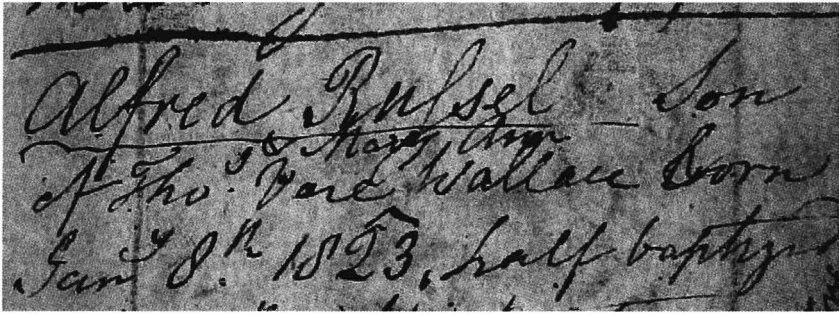 Alfred Russel — Son
& Mary Ann
of Tho.s Vere Wallace Born
Jan.y 8.th 1823, half baptized